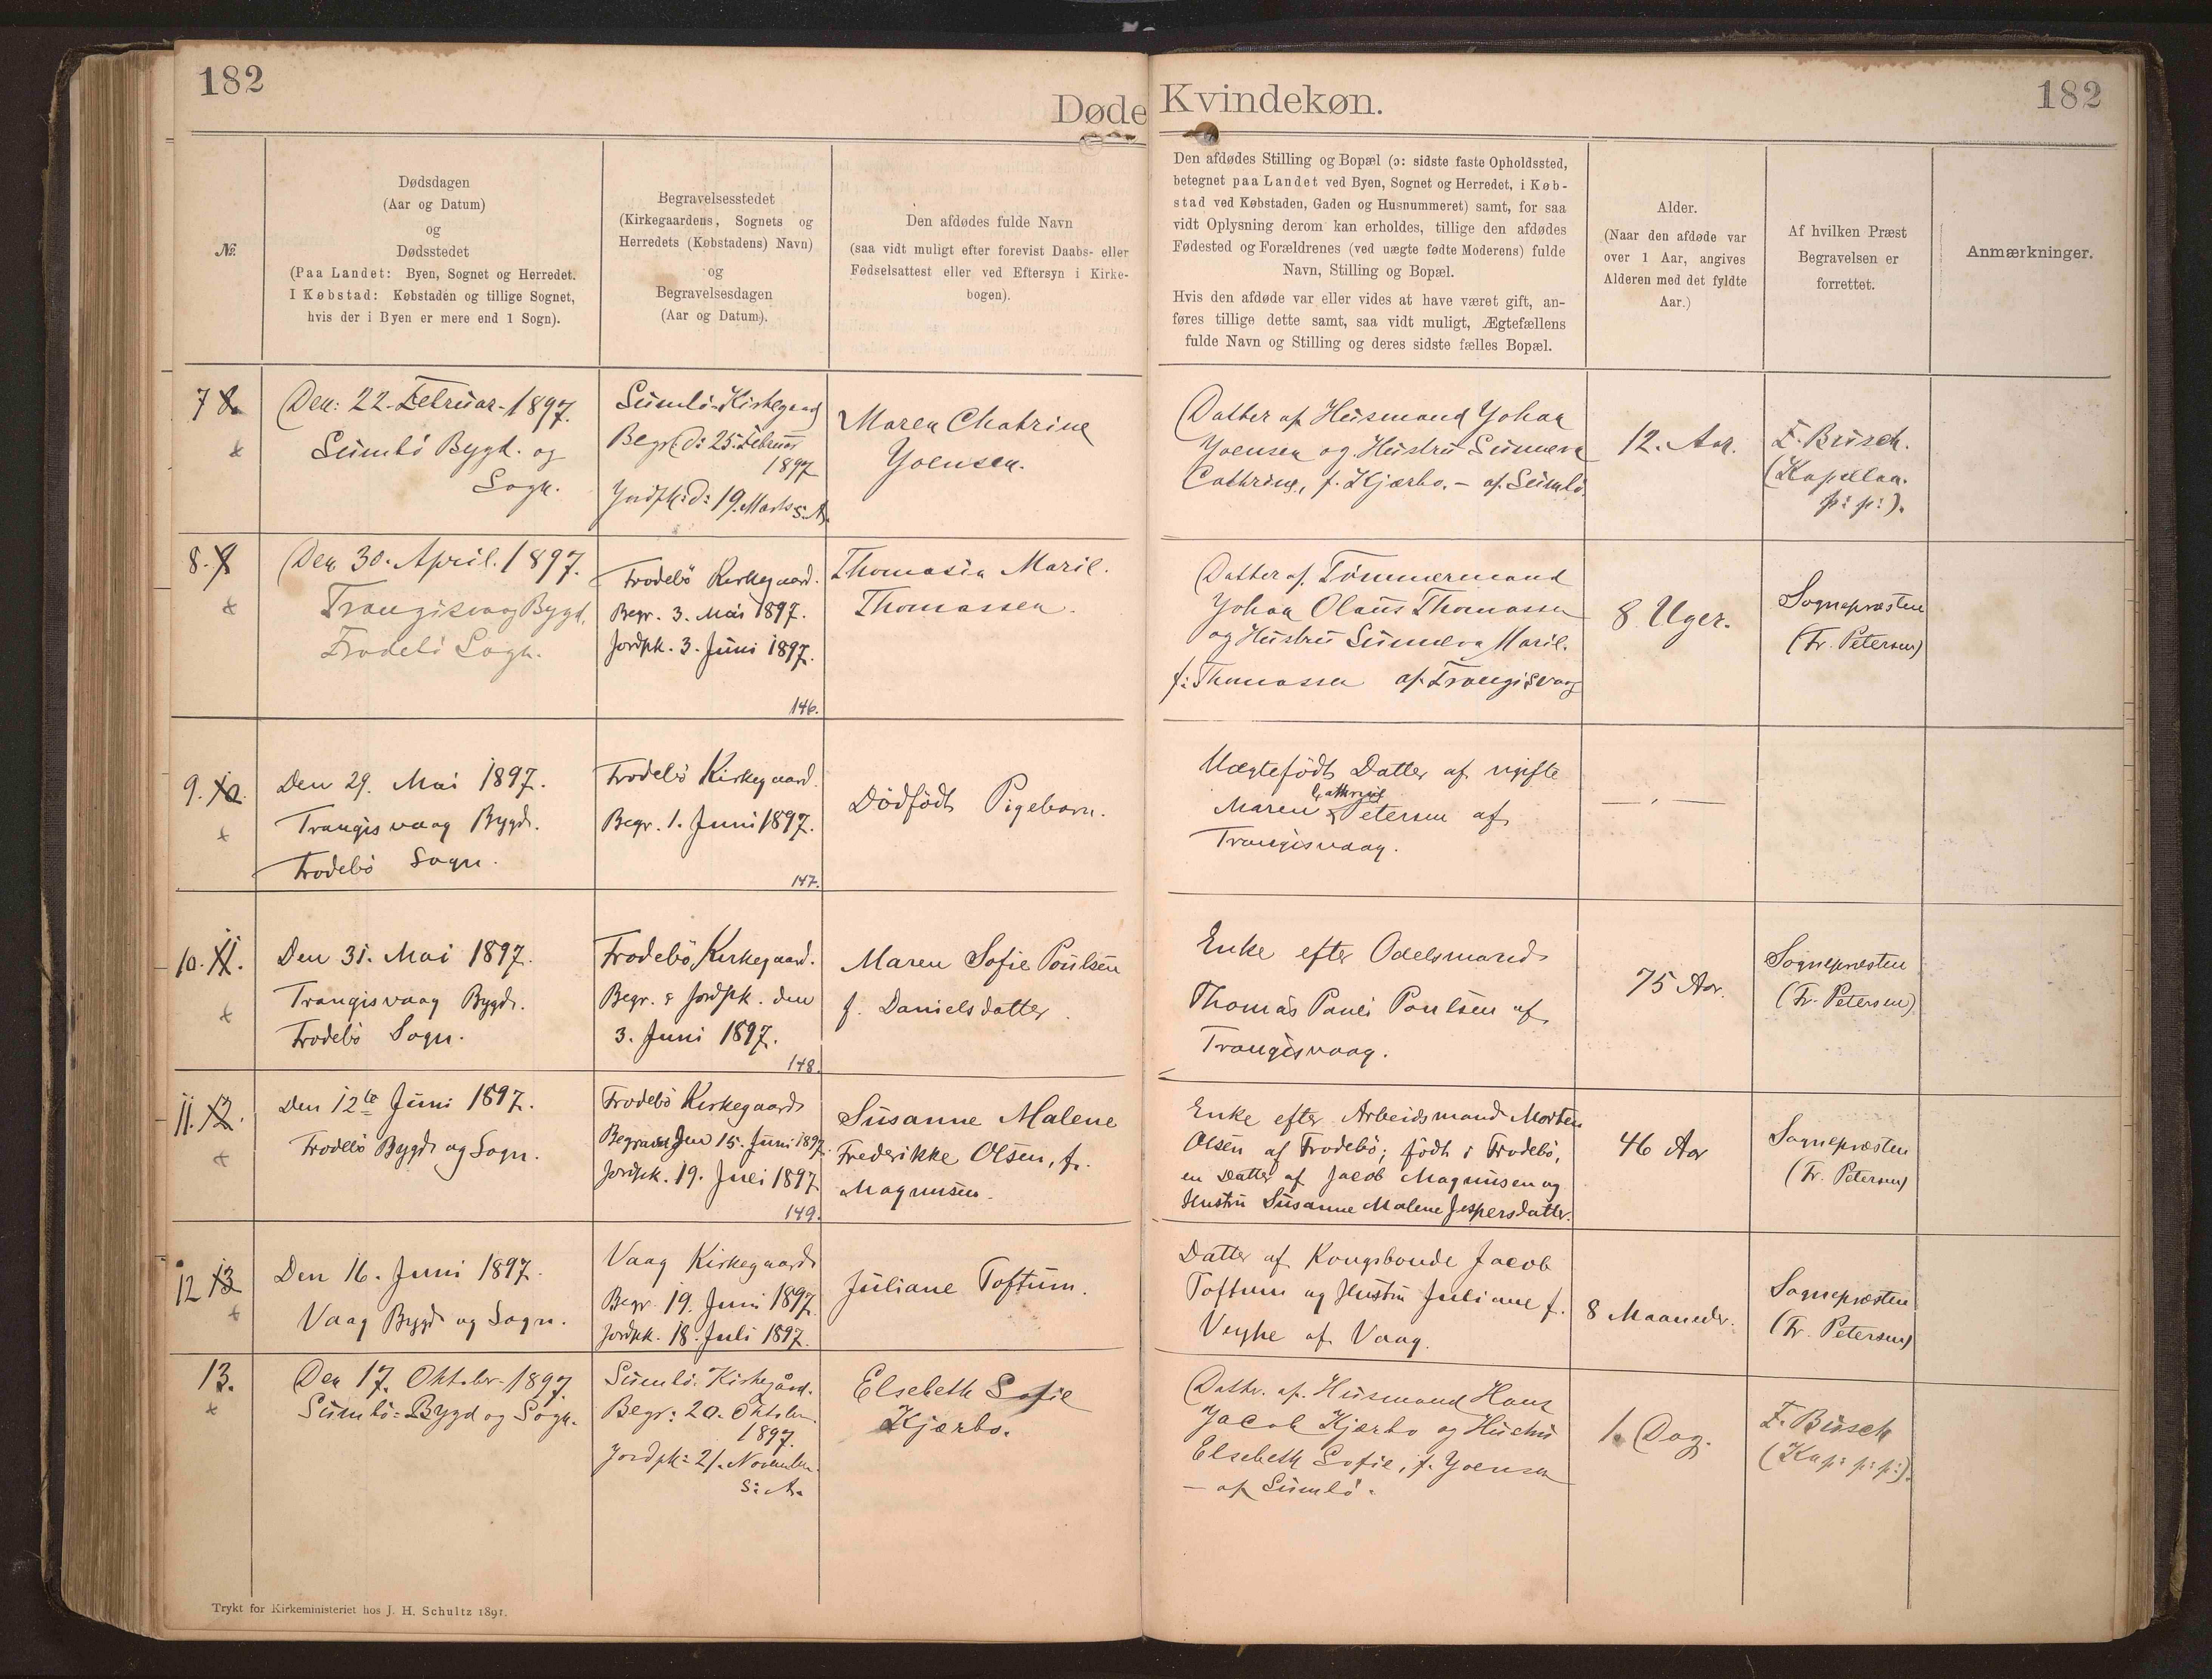 182
Døde Kvindekøn.
182
№
Dødsdagen
(Aar og Datum)
og
Dødsstedet
(Paa Landet: Byen, Sognet og Herredet.
I Købstad: Købstaden og tillige Sognet,
hvis der i Byen er mere end 1 Sogn).
Begravelsesstedet
(Kirkegaardens, Sognets og
Herredets (Købstadens) Navn)
og
Begravelsesdagen
(Aar og Datum).
Den afdødes fulde Navn
(saa vidt muligt efter forevist Daabs- eller
Fødselsattest eller ved Eftersyn i Kirke-
bogen).
Den afdødes Stilling og Bopæl (ɔ: sidste faste Opholdssted,
betegnet paa Landet ved Byen, Sognet og Herredet, i Køb-
stad ved Købstaden, Gaden og Husnummeret) samt, for saa
vidt Oplysning derom kan erholdes, tillige den afdødes
Fødested og Forældrenes (ved uægte fødte Moderens) fulde
Navn, Stilling og Bopæl.
Hvis den afdøde var eller vides at have været gift, an-
føres tillige dette samt, saa vidt muligt, Ægtefællens
fulde Navn og Stilling og deres sidste fælles Bopæl.
Alder.
(Naar den afdøde var
over 1 Aar, angives
Alderen med det fyldte
Aar.)
Af hvilken Præst
Begravelsen er
forrettet.
Anmærkninger.
7 8.
Den: 22. Februar. 1897.
Sumbö Bygd. og
Sogn.
Sumbö-Kirkegaard
Begr. d: 25. Februar
1897
Jordpk: d: 19. Marts s. A.
Maren Chatrine
Joensen.
Datter af Husmand Johan
Joensen og Hustru Sunneva
Cathrine, f. Kjærbo. - af Sumbö.
12. Aar.
F. Busch.
(Kapellan.
p: p:).
8. 9
Den 30. April. 1897.
Trangisvaag Bygd,
Frodebö Sogn.
Frodebö Kirkegaard.
Begr. 3. Mai 1897.
Jordpk. 3. Juni 1897.
146.
Thomasia Maril.
Thomassen.
Datter af. Tömmermand
Johan Olaus Thomassen
og Hustru Sunneva Maril.
f: Thomassen af Trangisvaag
8 Uger.
Sognepræsten
(Fr. Petersen)
9. 10.
Den 29. Mai 1897.
Trangisvaag Bygd.
Frodebö Sogn.
Frodebö Kirkegaard.
Begr. 1. Juni 1897.
147.
Dödfödt Pigebarn.
Uægtefödt Datter af ugifte
Cathrine
Maren Petersen af
Trangisvaag.
— . —
10. 11.
Den 31. Mai 1897.
Trangisvaag Bygd.
Frodebö Sogn.
Frodebö Kirkegaard.
Begr. & Jordpk. den
3. Juni 1897.
148.
Maren Sofie Poulsen
f. Danielsdatter.
Enke efter Odelsmand
Thomas Pauli Poulsen af
Trangisvaag.
75 Aar.
Sognepræsten
(Fr. Petersen)
11. 12.
Den 12te Juni 1897.
Frodebö Bygd og Sogn.
Frodebö Kirkegaard
Begravet den 15. Juni 1897.
Jordpk. 19. Juli 1897
149.
Susanne Malene
Frederikke Olsen, f.
Magnusen.
Enke efter Arbeidsmand Morten
Olsen af Frodebö; födt i Frodebö,
en Datter af Jacob Magnusen og
Hustru Susanne Malene Jespersdatter.
46 Aar
Sognepræsten
(Fr. Petersen)
12 13
Den 16. Juni 1897.
Vaag Bygd og Sogn.
Vaag Kirkegaard
Begr. 19. Juni 1897.
Jordpk. 18. Juli 1897.
Juliane Toftum.
Datter af Kongsbonde Jacob
Toftum og Hustru Juliane f.
Veyhe af Vaag.
8 Maaneder.
Sognepræsten
(Fr. Petersen)
13.
Den 17. Oktober-1897.
Sumbö=Bygd og Sogn.
Sumbö. Kirkegård.
Begr: 20. Oktober
1897.
Jordpk: 21. November
s: A.
Elsebeth Sofie
Kjærbo.
Dattr. af. Husmand Hans
Jacob Kjærbo og Hustru
Elsebeth Sofie, f. Joensen
— af Sumbö.
1. Dag.
F. Busch
(Kap: p: p:).
Trykt for Kirkeministeriet hos J. H. Schultz 1891.